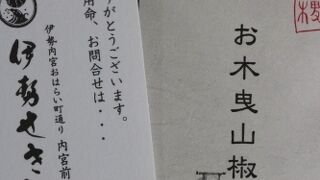 お木曳山椒
がとうございます。
用命、お問合せは・・・
伊勢内宮おはらい町通り 内宮前
伊勢せき